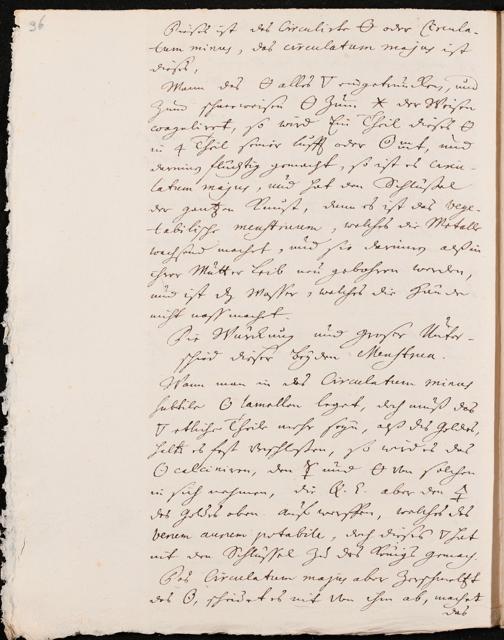 96
Dieses ist das Circulirte 🜔 oder Circula-
tum minus, das circulatum majus ist
dieses,
Wann das 🜔 alles 🜄 eingetruncken, und
zum schneeweisen 🜔 zum ✶ der Weisen
coaguliret, so wird Ein Theil dieses 🜔
in 4 Theil seiner lufft oder Quint, und
darinn flüchtig gemacht, so ist es circu-
latum majus, und hat den Schlüssel
der gantzen Kunst, denn es ist das vege-
tabilische menstruum, welches die Metalle
wachsend machet, und sie darinn, als in
ihrer Mutter Leib neu gebohren werden,
und ist das Wasser, welches die Hände
nicht nass machet.
Die Würckung und groser Unter-
schied dieser beyden Menstruen.
Wann man in das Circulatum minus
subtile ☉ lamellen leget, doch muß das
🜄 etliche Theile mehr seyn, als des Goldes,
halt es fest verschlossen, so wird es das
☉ calciniren, den 🜍 und 🜔 von solchen
in sich nehmen, die Q. E. aber den 🜍
des Goldes oben aus werffen, welches das
verum aurum potabile, doch dieses 🜄 hat
nit den Schlüssel zu des Königs gemach.
Das Circulatum majus aber zerschmeltzt
das ☉, scheidet es nit von ihm ab, machet
das